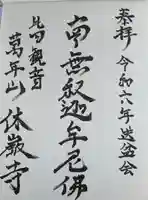 奉拝 令和六年盂盆会
南無釈迦牟尼佛
北向観音
萬年山 休巌寺